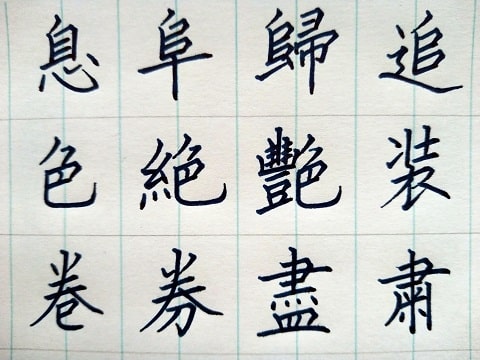 息阜歸追
色絶艷装
卷券盡肅